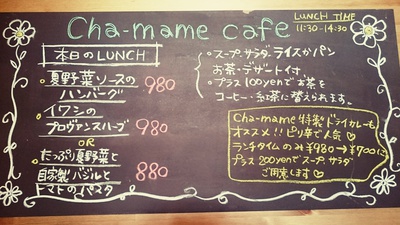 Cha-mame cafe
LUNCH TIME
11:30-14:30
本日のLUNCH
・夏野菜ソースの
ハンバーグ 980
・イワシの
プロヴァンスハーブ 980
OR
・たっぷり夏野菜と
自家製バジルと
トマトのパスタ 880
・スープ、サラダ、ライスかパン
お茶・デザート付
・プラス100yenでお茶を
コーヒー・紅茶に替えられます。
Cha-mame 特製ドライカレーも
オススメ!!ピリ辛で人気♡
ランチタイムのみ¥980→¥700に
プラス200yenでスープ、サラダ
ご用意します♡